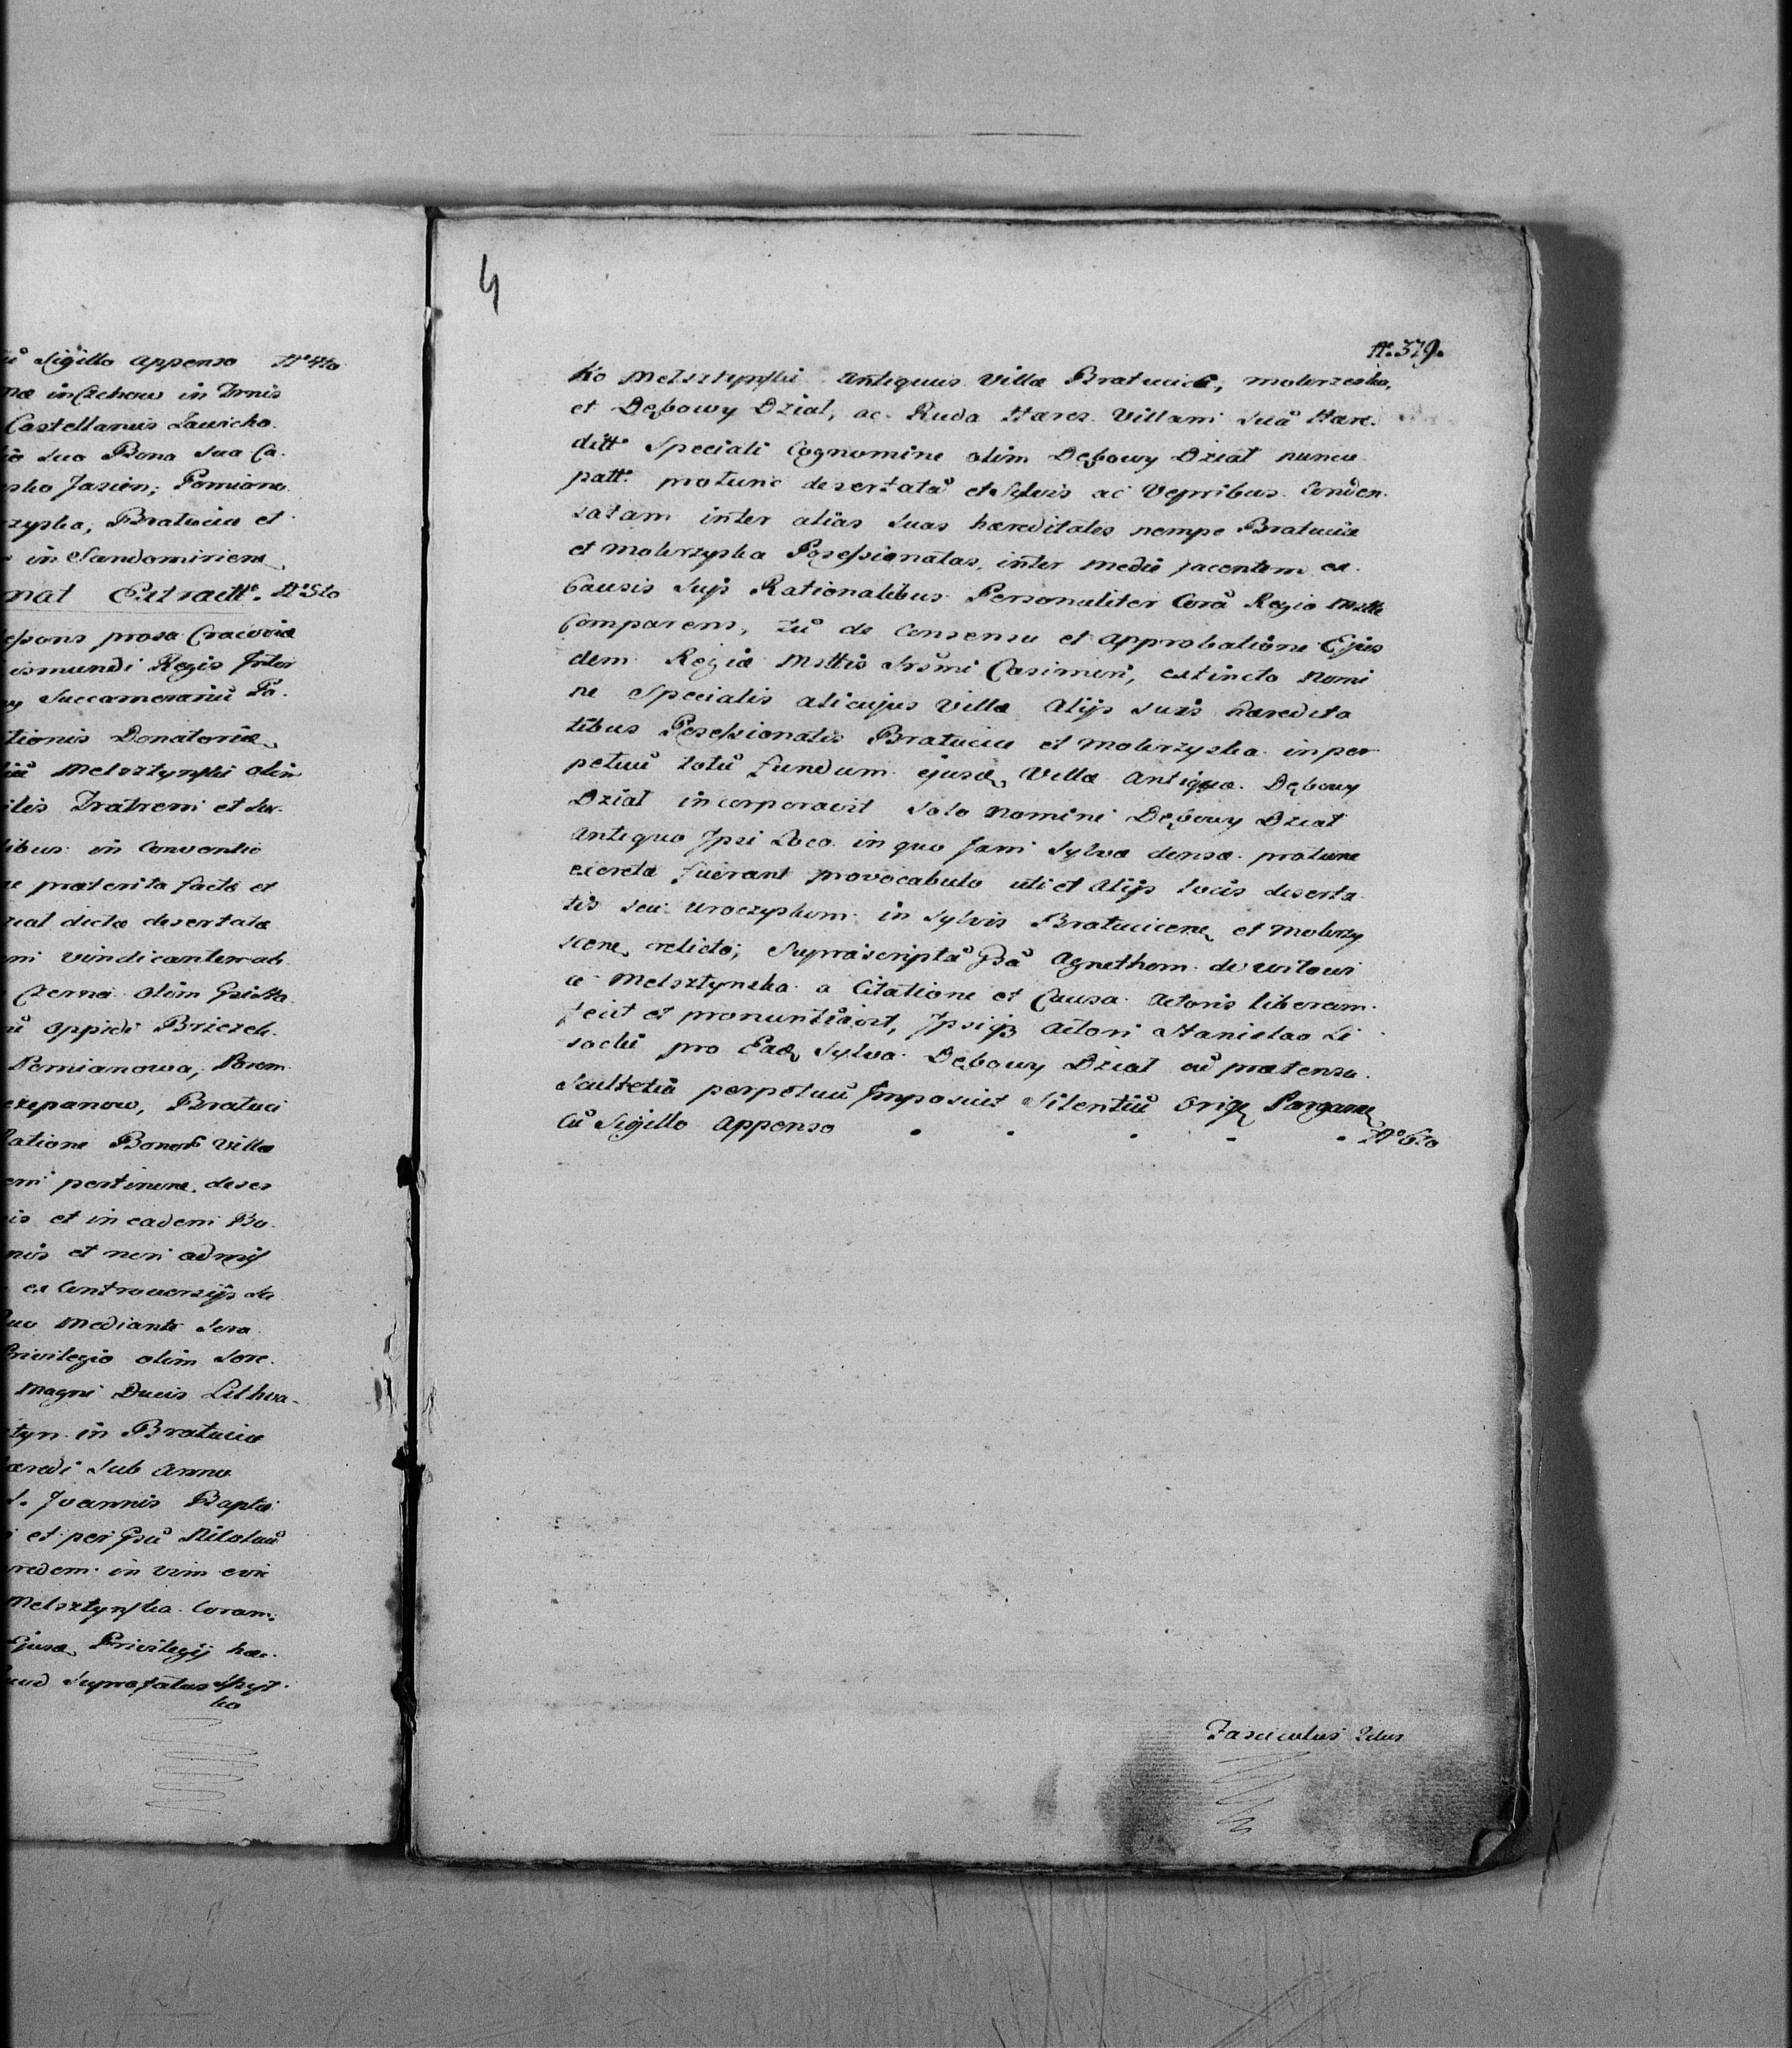 ũ Sigillo appenso Nº 4to
næ in Czchow in Trnis
Castellanus Zawicho.
Bona Sua Ca.
sko Jasien; Pomiano.
zyska, Bratucice et
in Sandomirien.
nat Extractt. Nº 5to
prosa Cracoviæ
ismundi Regis Inter
Succamerariũ Po.
tionis Donatoriæ
Melsztynski olim
ilis Fratrem et Suc.
libus in Conventio
præterita facto et
dictæ desertatæ
vindicanter ad
Czerna olim
oppidi Brzezek.
Pomianowa, Porem.
czepanow, Bratuci
Ratione Bonor Villæ
pertinen. deser
is et in eadem Bo.
nis et non admis
ex Controversijs
Quo Mediante Sere
Privilegio olim Sere.
Magni Ducis Lithva-
tyn in Bratucice
æredi Sub Anno
S. Joannis Baptæ
et per
redem in vim evic
Melsztynska Coram.
Ejusd Privilegij hæ.
Suprafatus Spyt.
ko
4
Nº 379.
ko Melsztynski Antiquus Villæ Bratucice, Mokrzeska,
et Dębowy Dział, ac Ruda Hæres Villam Suã Hære.
ditt. Speciali Cognomine olim Dębowy Dział nuncu
patt. protunc desertatã et Sylvis ac Vepribus Conden.
satam inter alias Suas hæreditates nempe Bratucice
et Mokrzyska Possessionatas, inter mediũ jacentem ex
Causis Suis Rationalibus Personaliter Corã Regia Mtte
Comparens, Tũ de Consensu et Approbatione Ejus
dem Regiæ Mttis Srsmi Casimiri, extincto Nomi
ne Specialis alicujus Villæ Alijs Suis hæredita
tibus Possessionatis Bratucice et Mokrzyska in per
petuũ totũ fundum ejusd Villæ Antiquæ Dębowy
Dział incorporavit Solo Nomine Dębowy Dział
Antiquo Ipsi Loco in quo Jam Sylvæ densæ protunc
excretæ fuerant provocabulo uti et Alijs locis deserta
tis Seu Uroczyskom in Sylvis Bratucicen et Mokrzy
scen relicto; Suprascriptã Agnethem de Witowi
ce Melsztynska a Citatione et Causa Actoris liberam
fecit et pronuntiavit, Ipsiq Actori Stanislao Li
sochi pro Ead Sylva Dębowy Dział cũ prætensa
Scultetiã perpetuũ Imposuit Silentiũ Orig. Pargamen
Cũ Sigillo Appenso . . . . . Nº 6to
Fasciculus 2dus